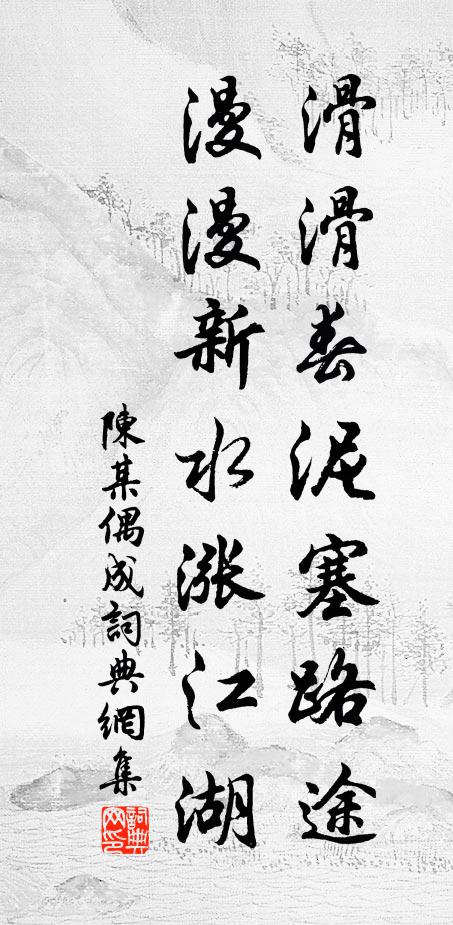 滑滑春泥塞路途
漫漫新水漲江湖
陳某偶成詞典網集
詞典
网印